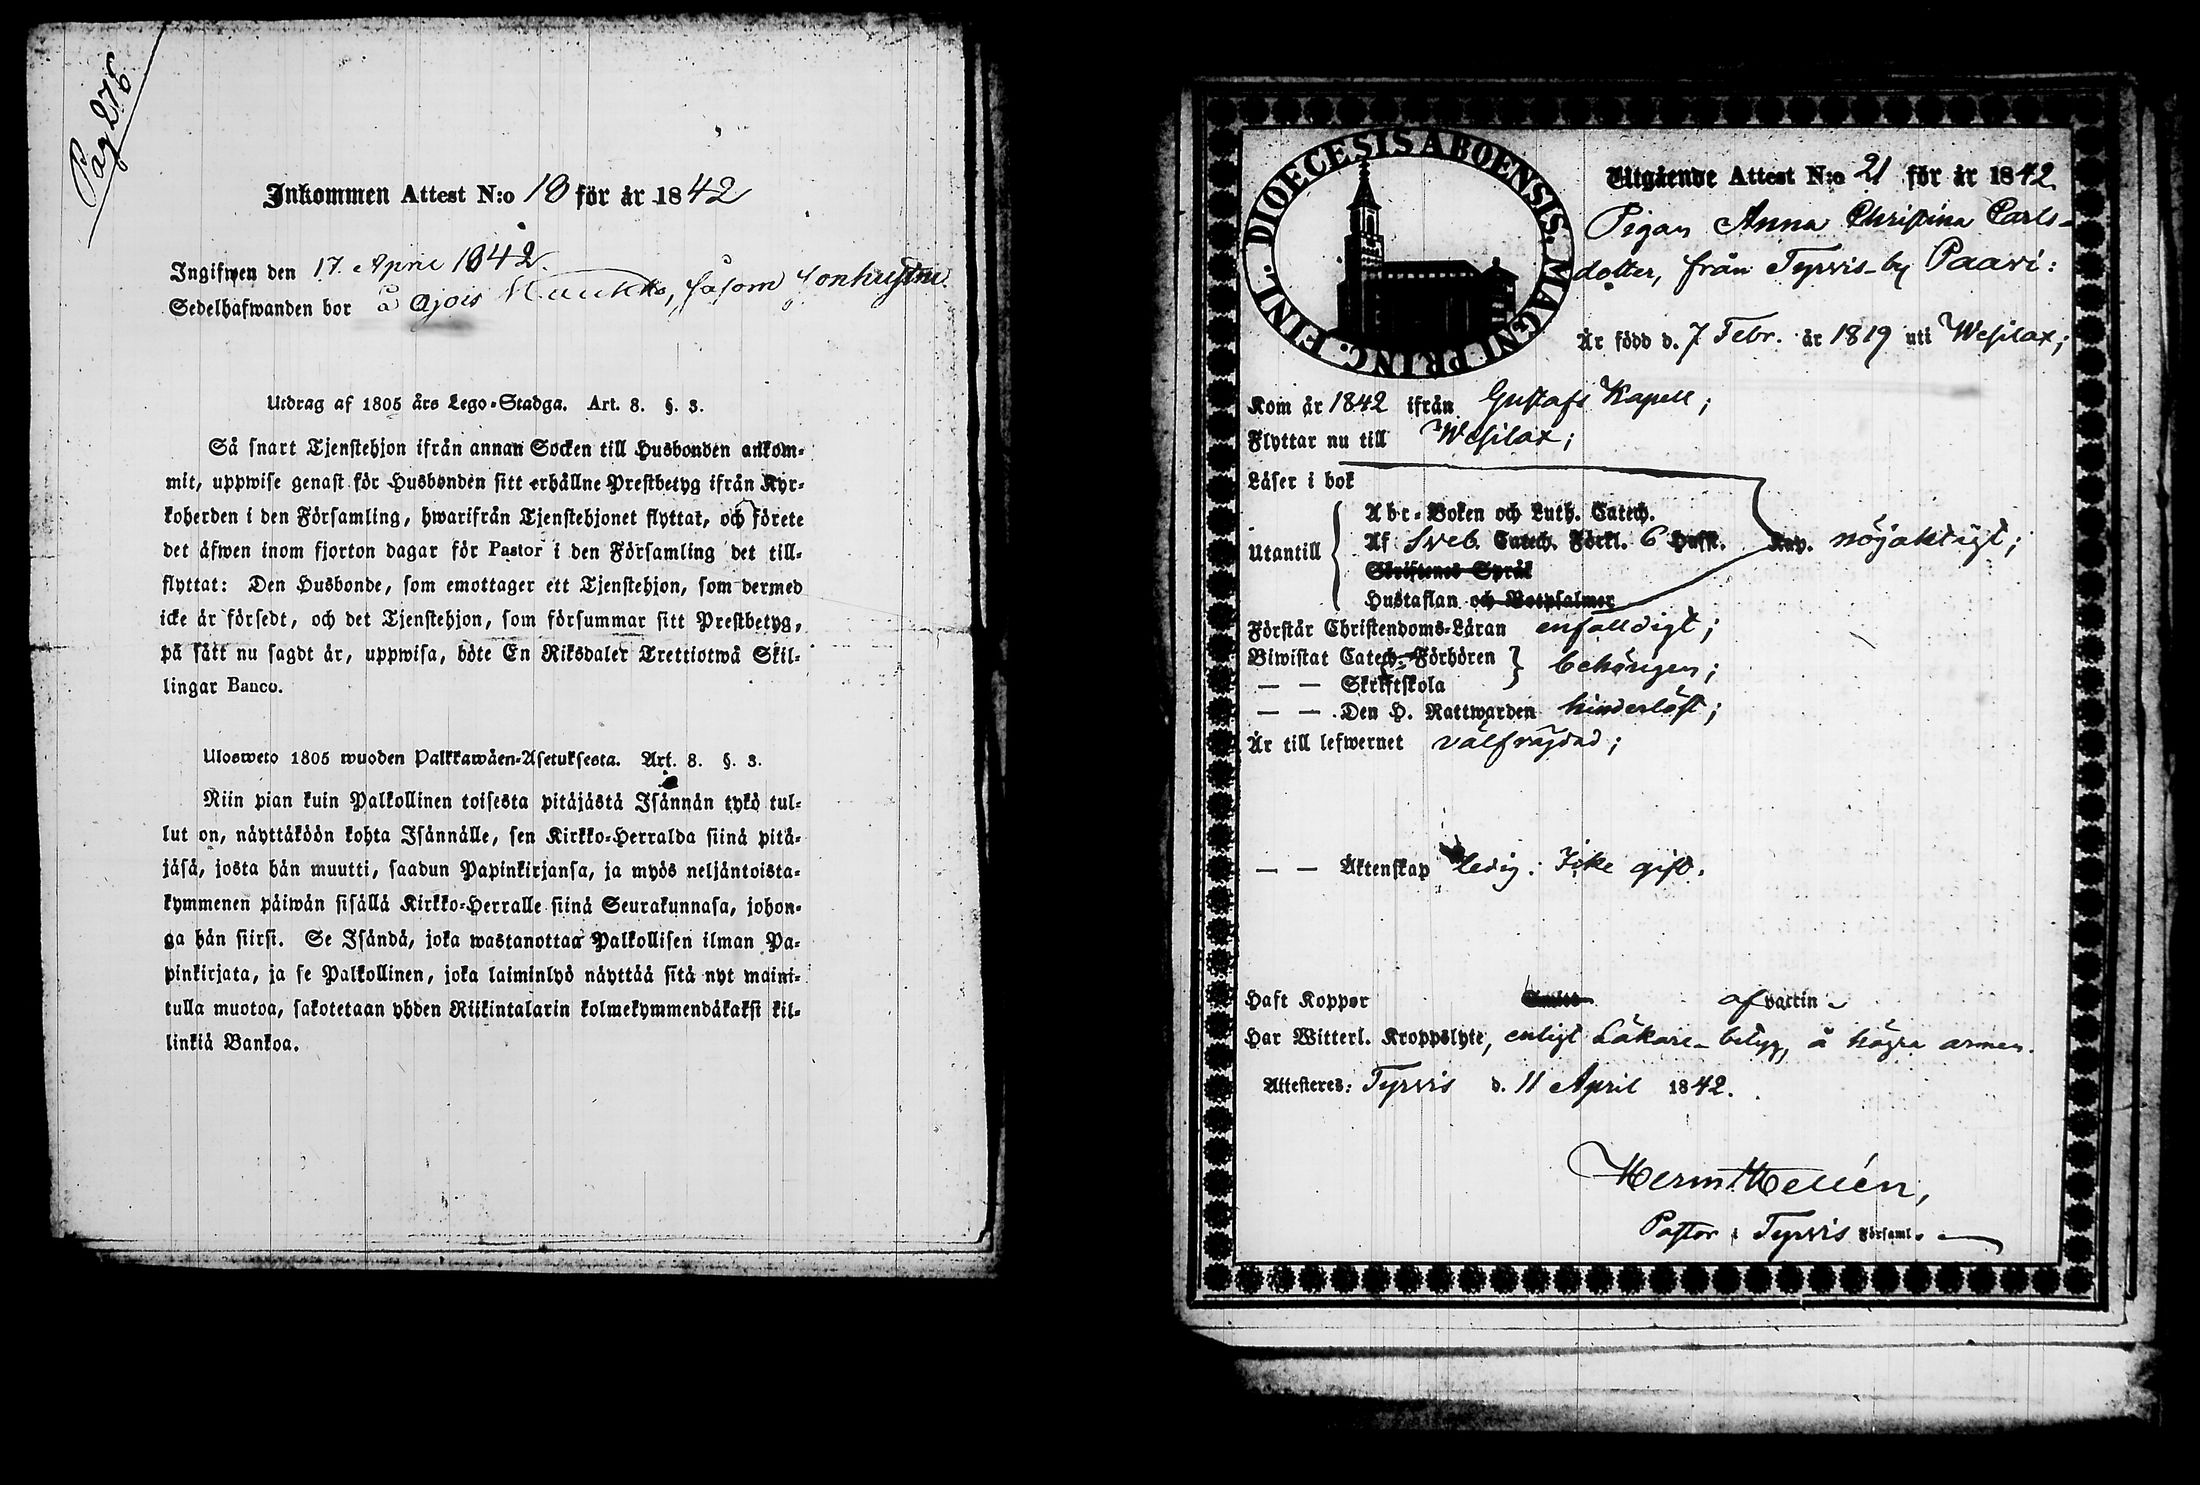 Pag 276
Inkommen Attest N:o 18 för år 1842
Ingifwen den 17. April 1842.
Sedelhafwanden bor å Ajois Kuukko, såsom sonhustru.
Utdrag af 1805 års Lego-Stadga. Art. 8. §. 3.
Så snart Tjenstehjon ifrån annan Socken till Husbonden ankom-
mit, uppwise genast för Husbonden sitt erhållne Prestbetyg ifrån Kyr-
koherden i den Församling, hwarifrån Tjenstehjonet flyttat, och förete
det äfwen inom fjorton dagar för Pastor i den Församling det till-
flyttat: Den Husbonde, som emottager ett Tjenstehjon, som dermed
icke är försedt, och det Tjenstehjon, som försummar sitt Prestbetyg,
på sätt nu sagdt är, uppwisa, böte En Riksdaler Trettiotwå Skil-
lingar Banco.
Ulosweto 1805 wuoden Palkkawäen-Asetuksesta. Art. 8. §. 3.
Niin pian kuin Palkollinen toisesta pitäjästä Isännän tykö tul-
lut on, näyttäköön kohta Isännälle, sen Kirkko-Herralda siinä pitä-
jäsä, josta hän muutti, saadun Papinkirjansa, ja myös neljäntoista-
kymmenen päiwän sisällä Kirkko-Herralle siinä Seurakunnasa, johon-
ga hän siirsi. Se Isändä, joka wastanottaa Palkollisen ilman Pa-
pinkirjata, ja se Palkollinen, joka laiminlyö näyttää sitä nyt maini-
tulla muotoa, sakotetaan yhden Riikintalarin kolmekymmendäkaksi kil-
linkiä Bankoa.
DIOECESIS ABOENSIS. MAGNI PRINC. FINL.
Utgående Attest N:o 21 för år 1842.
Pigan Anna Christina Carls-
dotter, från Tyrvis-by Paavi:
Är född d. 7 Febr. år 1819 uti Wesilax;
Kom år 1842 ifrån Gustafs Kapell;
Flyttar nu till Wesilax;
Läser i bok
Utantill
Abc-Boken och Luth. Catech.
Af Sveb. Catech. Förkl. 6 Hufst. Kap. nöjaktigt;
Skriftenes Språk
Hustaflan och Botpsalmer
Förstår Christendoms-Läran enfaldigt;
Biwistat Catech. Förhören
— — Skriftskola behörigen;
— — Den H. Nattwarden hinderlöst;
Är till lefwernet välfrägdad;
— — Äktenskap ledig: Icke gift.
Haft Koppor af vaccin
Har Witterl. Kroppslyte, enligt Läkare-betyg, å högra armen.
Attesteres: Tyrvis d. 11 April 1842.
Herm Hellén,
Pastor i Tyrvis Församl.